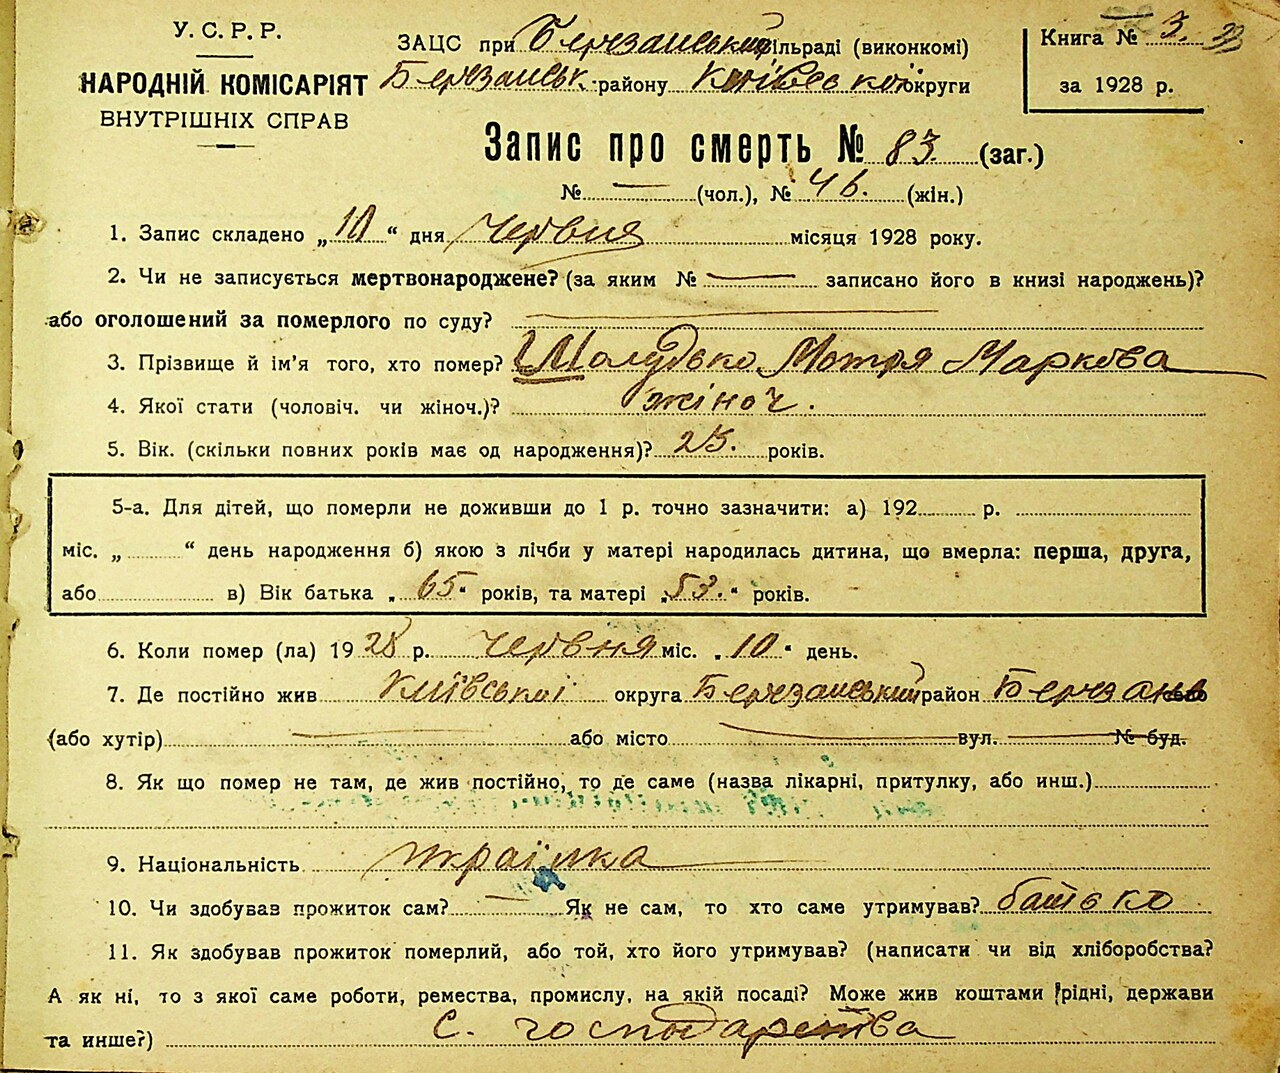 У. С. Р. Р.
НАРОДНІЙ КОМІСАРІЯТ
ВНУТРІШНІХ СПРАВ
ЗАЦС при Березанський сільраді (виконкомі)
Березанськ. району Київської округи
Книга № 3.
за 1928 р.
Запис про смерть № 83. (заг.)
№ — (чол.), № 46. (жін.)
1. Запис складено „10“ дня червня місяця 1928 року.
2. Чи не записується мертвонароджене? (за яким № — записано його в книзі народжень)?
або оголошений за померлого по суду? —
3. Прізвище й ім'я того, хто помер? Шолудько Мотря Маркова
4. Якої стати (чоловіч. чи жіноч.)? жіноч.
5. Вік. (скільки повних років має од народження)? 25. років.
5-а. Для дітей, що померли не доживши до 1 р. точно зазначити: а) 192 р.
міс. „ “ день народження б) якою з лічби у матері народилась дитина, що вмерла: перша, друга,
або в) Вік батька „65“ років, та матері „53.“ років.
6. Коли помер (ла) 1928 р. червня міс. „10“ день.
7. Де постійно жив Київської округа Березанський район Березань
(або хутір) — або місто — вул. — № буд.
8. Як що помер не там, де жив постійно, то де саме (назва лікарні, притулку, або инш.)
9. Національність українка
10. Чи здобував прожиток сам? — Як не сам, то хто саме утримував? батько
11. Як здобував прожиток померлий, або той, хто його утримував? (написати чи від хліборобства?
А як ні, то з якої саме роботи, ремества, промислу, на якій посаді? Може жив коштами рідні, держави
та инше?) С. господарства